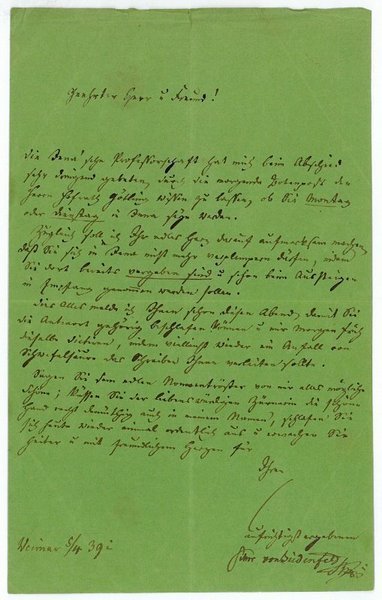 Geehrter Herr u Freund!
Die Jena'sche Professorschaft hat mich beim Abschied
sehr dringend gebeten, durch die morgende Botenpost den
Herrn Hofrath Göttling wissen zu lassen, ob Sie Montag
oder Dienstag in Jena seyn werden.
Zugleich soll ich Ihr edles Herz darauf aufmerksam machen,
daß Sie sich in Jena nicht mehr verplempern dürfen, indem
Sie dort bereits vergeben sind u schon beim Aussteigen
in Empfang genommen werden sollen.
Dies Alles melde ich Ihnen schon diesen Abend, damit Sie
die Antwort gehörig beschlafen können u mir Morgen früh
dieselbe dictiren, indem vielleicht wieder ein Anfall von
das Schreiben Ihnen verleiten sollte.
Sagen Sie dem edlen von mir alles mögliche
Schöne, küssen Sie der liebenswürdigen die schöne
Hand recht demüthig auch in meinem Namen, schlafen Sie
sich heute wieder einmal ordentlich aus u erwachen Sie
heiter u mit freundlichem Herzen für
Ihren
aufrichtigst ergebenen
von Biedenfeld
Weimar 5/4 39